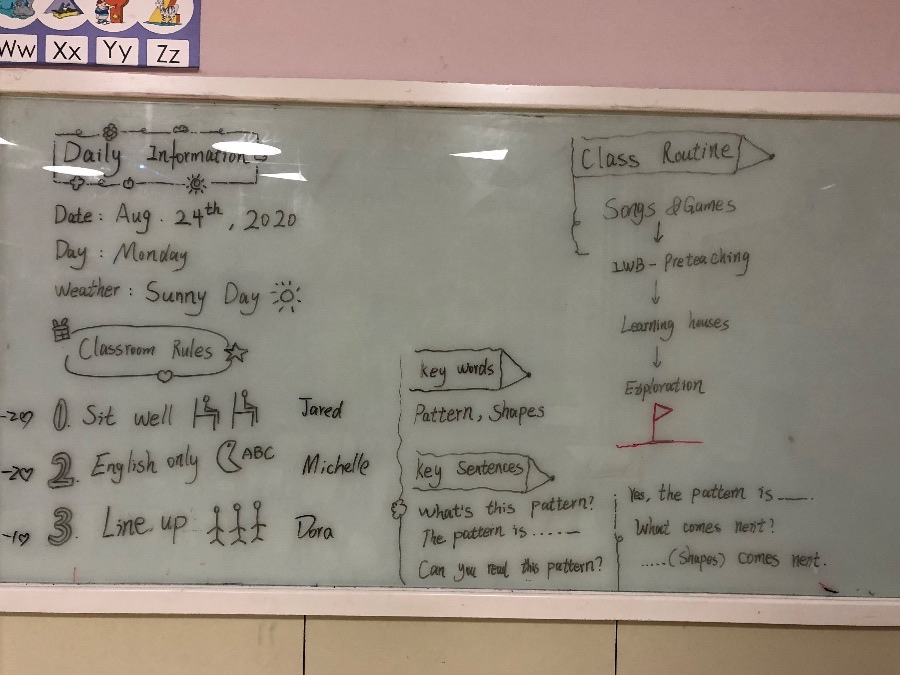 Ww Xx Yy Zz
Daily Information
Date : Aug. 24th, 2020
Day : Monday
Weather : Sunny Day
Classroom Rules
-2♡ 1. Sit well Jared
-2♡ 2. English only ABC Michelle
-1♡ 3. Line up Dora
Key words
Pattern, Shapes
Key Sentences
What's this pattern?
The pattern is ......
Can you read this pattern?
Yes, the pattern is ___.
What comes next?
.....(Shapes) comes next.
Class Routine
Songs & Games
↓
IWB - Preteaching
↓
Learning houses
↓
Exploration